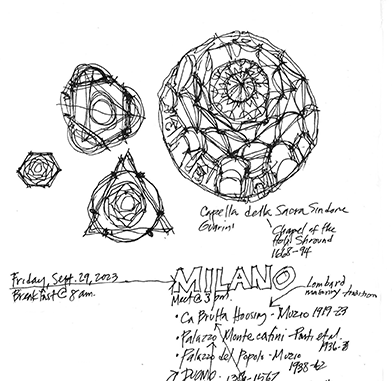 Capella della Sacra Sindone
Guarini
Chapel of the
Holy Shroud
1668-94
Friday, Sept. 29, 2023
Breakfast @ 8 am.
MILANO
Meet @ 3 pm.
Lombard
masonry tradition
• Ca Brutta Housing - Muzio 1919-23
• Palazzo Montecatini - Ponti et al.
1936-8
• Palazzo del Popolo - Muzio
1938-42
DUOMO - 1386-1567